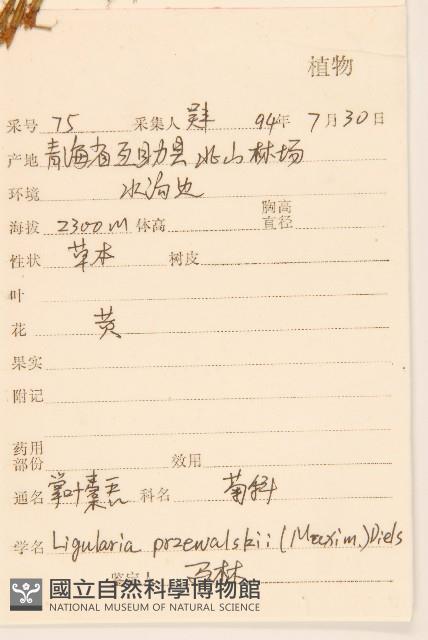 植物
采号 75 采集人 94年 7月30日
产地 青海省互助县北山林场
环境 水沟边
海拔 2300M 体高 胸高直径
性状 草本 树皮
叶
花 黄
果实
附记
药用部份 效用
通名 掌叶橐吾 科名 菊科
学名 Ligularia przewalskii (Maxim.) Diels
鉴定人 林
國立自然科學博物館
NATIONAL MUSEUM OF NATURAL SCIENCE